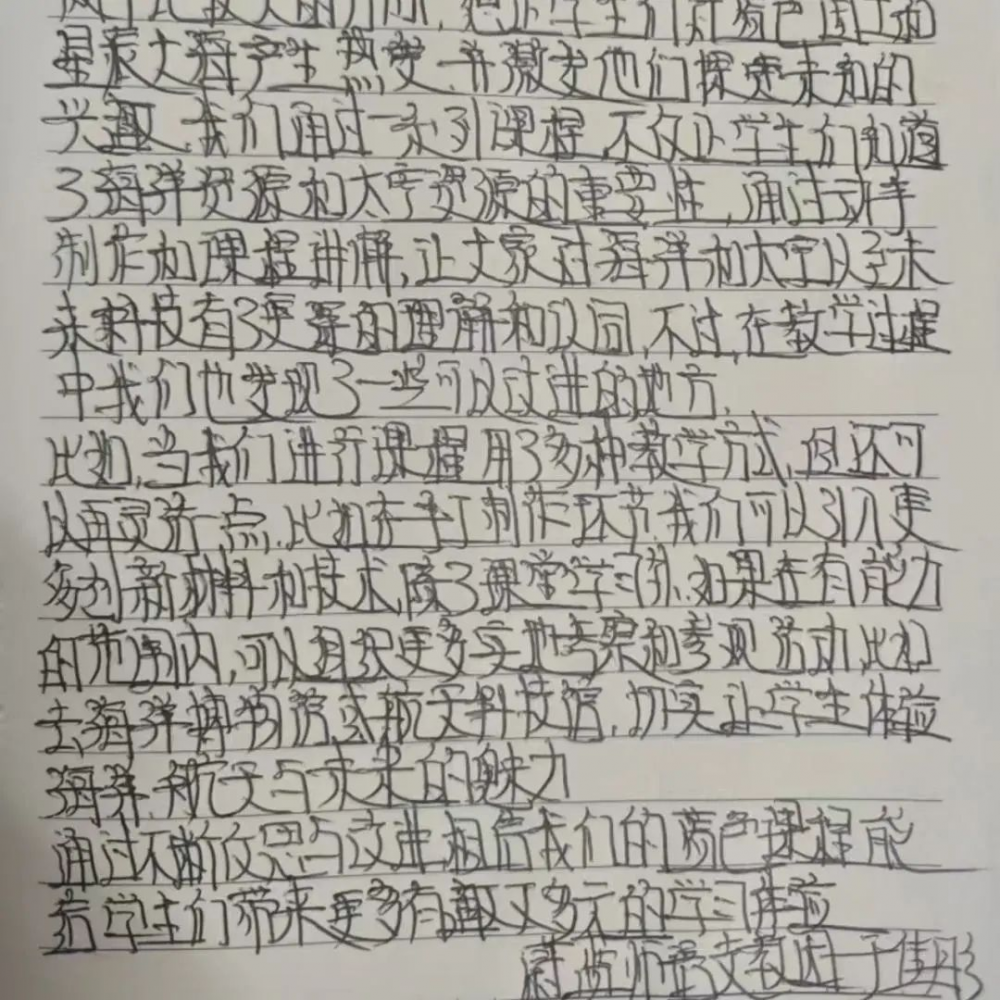 想让学生们对蓝色国土和
星辰大海产生热爱,并激发他们探索未知的
兴趣,我们通过一系列课程,不仅让学生们知道
了海洋资源和太空资源的重要性,通过动手
制作和课程讲解,让大家对海洋和太空以及未
来科技有了更深的理解和认同,不过,在教学过程
中我们也发现了一些可以改进的地方,
比如,当我们进行课程用了多种教学方式,但还可
以再灵活一点,比如在手工制作环节,我们可以引入更
多创新材料和技术,除了课堂学习外,如果在有能力
的范围内,可以组织更多实地考察和参观活动,比如
去海洋博物馆或航天科技馆,切实让学生体验
海洋,航天与未来的魅力
通过不断反思与改进,相信我们的蓝色课程能
给学生们带来更多有趣又多元的学习体验
支教团于佳彤